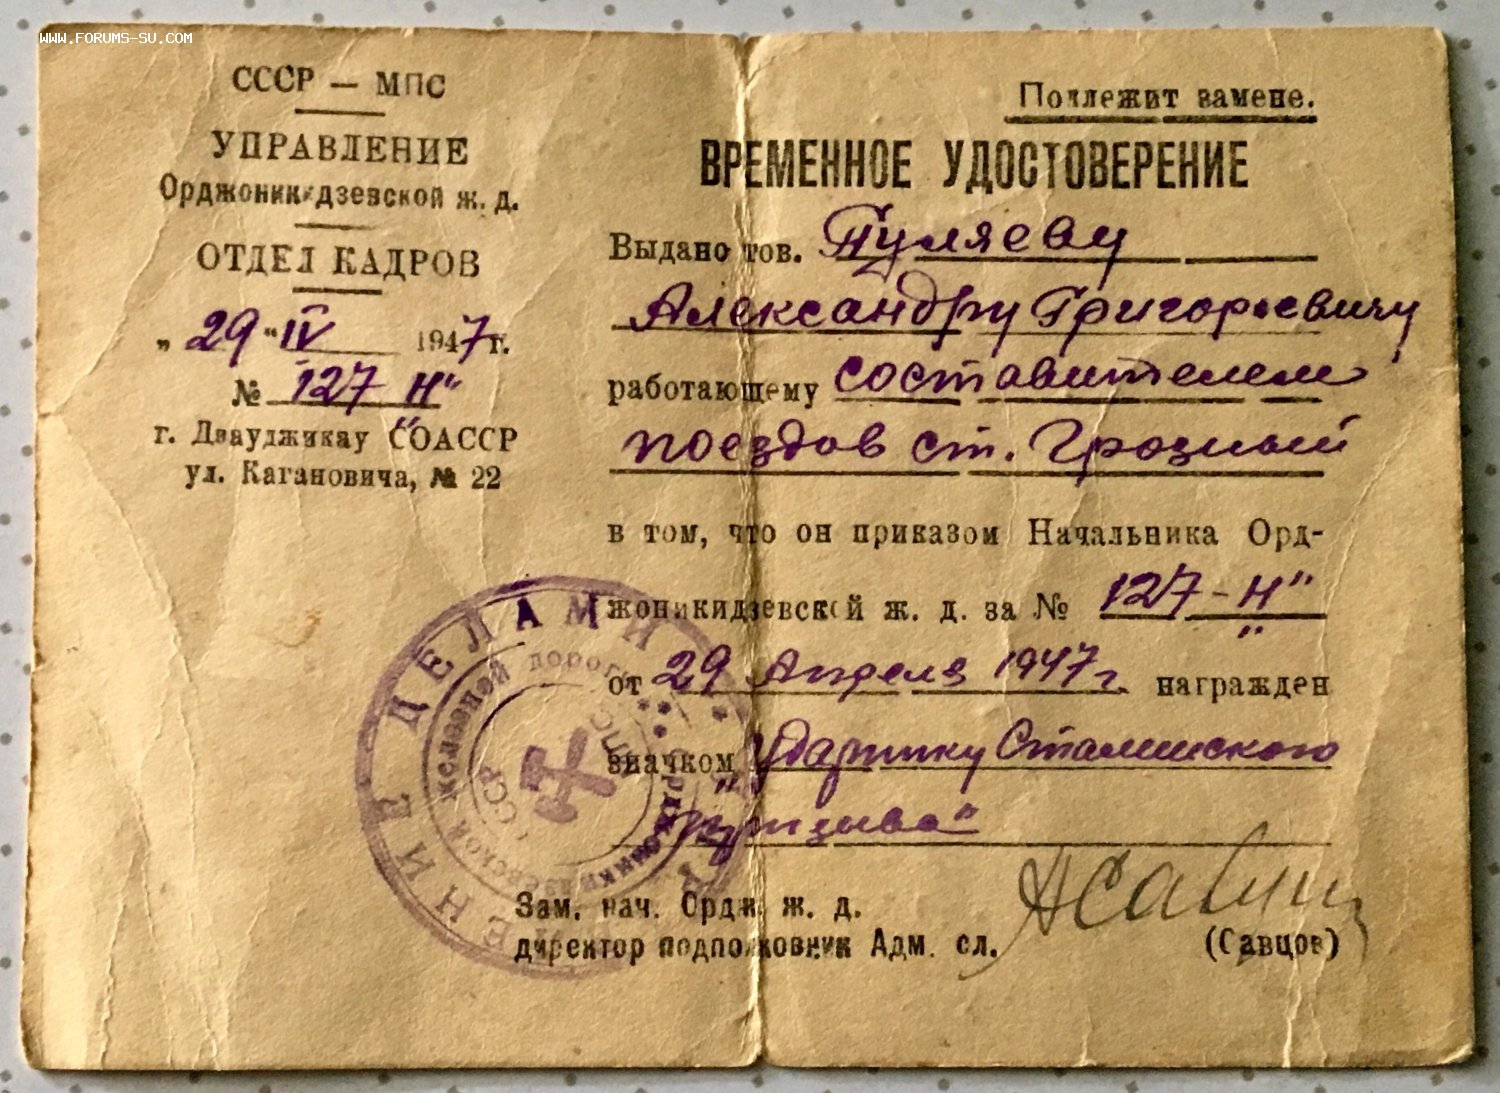 WWW.FORUMS-SU.COM
СССР — МПС
УПРАВЛЕНИЕ
Орджоникидзевской ж. д.
ОТДЕЛ КАДРОВ
„ 29 “ IV 1947 г.
№ 127 „Н“
г. Дзауджикау СОАССР
ул. Кагановича, № 22
Подлежит замене.
ВРЕМЕННОЕ УДОСТОВЕРЕНИЕ
Выдано тов. Гуляеву
Александру Григорьевичу
работающему составителем
поездов ст. Грозный
в том, что он приказом Начальника Орд-
жоникидзевской ж. д. за № 127-„Н“
от 29 Апреля 1947 г. награжден
значком „Ударнику Сталинского
призыва“
Зам. нач. Ордж. ж. д.
директор подполковник Адм. сл.
(Савцов)
ЕНИЕ ДЕЛАМИ
Орджоникидзевской железной дороги
СССР